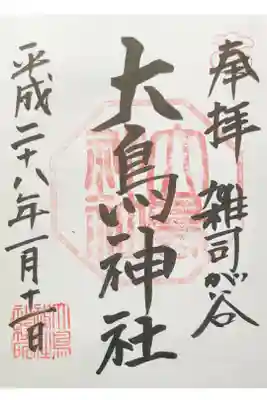 奉拝 雑司が谷
大鳥神社
平成二十八年一月十一日